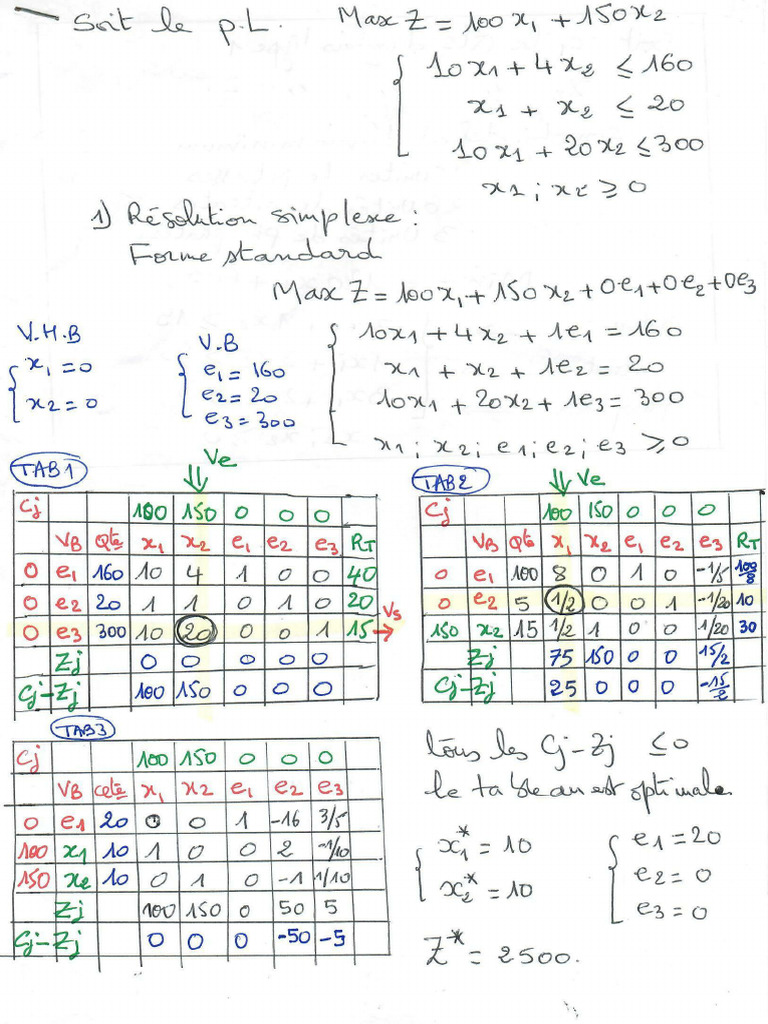 Soit le p.L. Max Z = 100x₁ + 150x₂
10x₁ + 4x₂ ≤ 160
x₁ + x₂ ≤ 20
10x₁ + 20x₂ ≤ 300
x₁ ; x₂ ≥ 0
1) Résolution simplexe :
Forme standard
Max Z = 100x₁ + 150x₂ + 0e₁ + 0e₂ + 0e₃
V.H.B
x₁ = 0
x₂ = 0
V.B
e₁ = 160
e₂ = 20
e₃ = 300
10x₁ + 4x₂ + 1e₁ = 160
x₁ + x₂ + 1e₂ = 20
10x₁ + 20x₂ + 1e₃ = 300
x₁ ; x₂ ; e₁ ; e₂ ; e₃ ≥ 0
TAB1
Ve
Cj 100 150 0 0 0
VB Qté x₁ x₂ e₁ e₂ e₃ RT
0 e₁ 160 10 4 1 0 0 40
0 e₂ 20 1 1 0 1 0 20
0 e₃ 300 10 20 0 0 1 15 Vs
Zj 0 0 0 0 0
Cj-Zj 100 150 0 0 0
TAB2
Ve
Cj 100 150 0 0 0
VB Qté x₁ x₂ e₁ e₂ e₃ RT
0 e₁ 100 8 0 1 0 -1/5 100/8
0 e₂ 5 1/2 0 0 1 -1/20 10
150 x₂ 15 1/2 1 0 0 1/20 30
Zj 75 150 0 0 15/2
Cj-Zj 25 0 0 0 -15/2
TAB3
Cj 100 150 0 0 0
VB x₁ x₂ e₁ e₂ e₃
0 e₁ 20 0 0 1 -16 3/5
100 x₁ 10 1 0 0 2 -1/10
150 x₂ 10 0 1 0 -1 1/10
Zj 100 150 0 50 5
Cj-Zj 0 0 0 -50 -5
tous les Cj-Zj ≤ 0
le tableau est optimale
x₁* = 10
x₂* = 10
e₁ = 20
e₂ = 0
e₃ = 0
Z* = 2500.